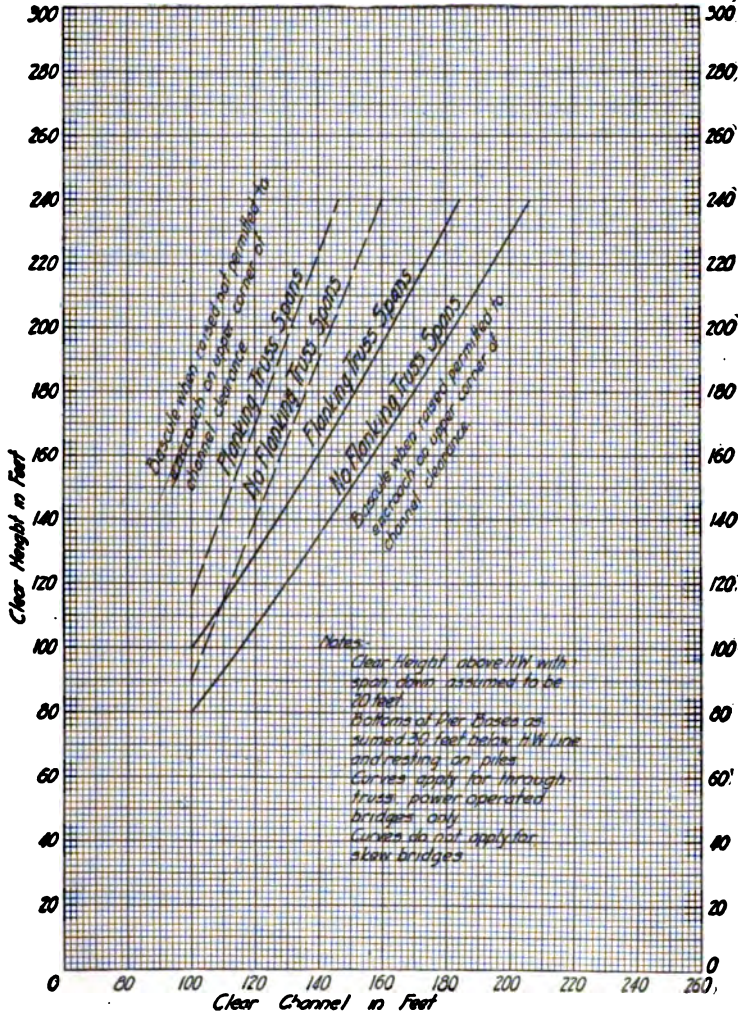 300
280
260
240
220
200
180
160
140
120
100
80
60
40
20
0
Clear Height in Feet
300
280
260
240
220
200
180
160
140
120
100
80
60
40
20
0
Bascule when raised not permitted to
encroach on upper corner of
channel clearance
Flanking Truss Spans
No Flanking Truss Spans
Flanking Truss Spans
No Flanking Truss Spans
Bascule when raised permitted to
encroach on upper corner of
channel clearance.
Notes:-
Clear Height above HW with
span down assumed to be
20 feet
Bottoms of Pier Bases as
sumed 30 feet below HW Line
and resting on piles
Curves apply for through
truss power operated
bridges only
Curves do not apply for
skew bridges
80 100 120 140 160 180 200 220 240 260
Clear Channel in Feet